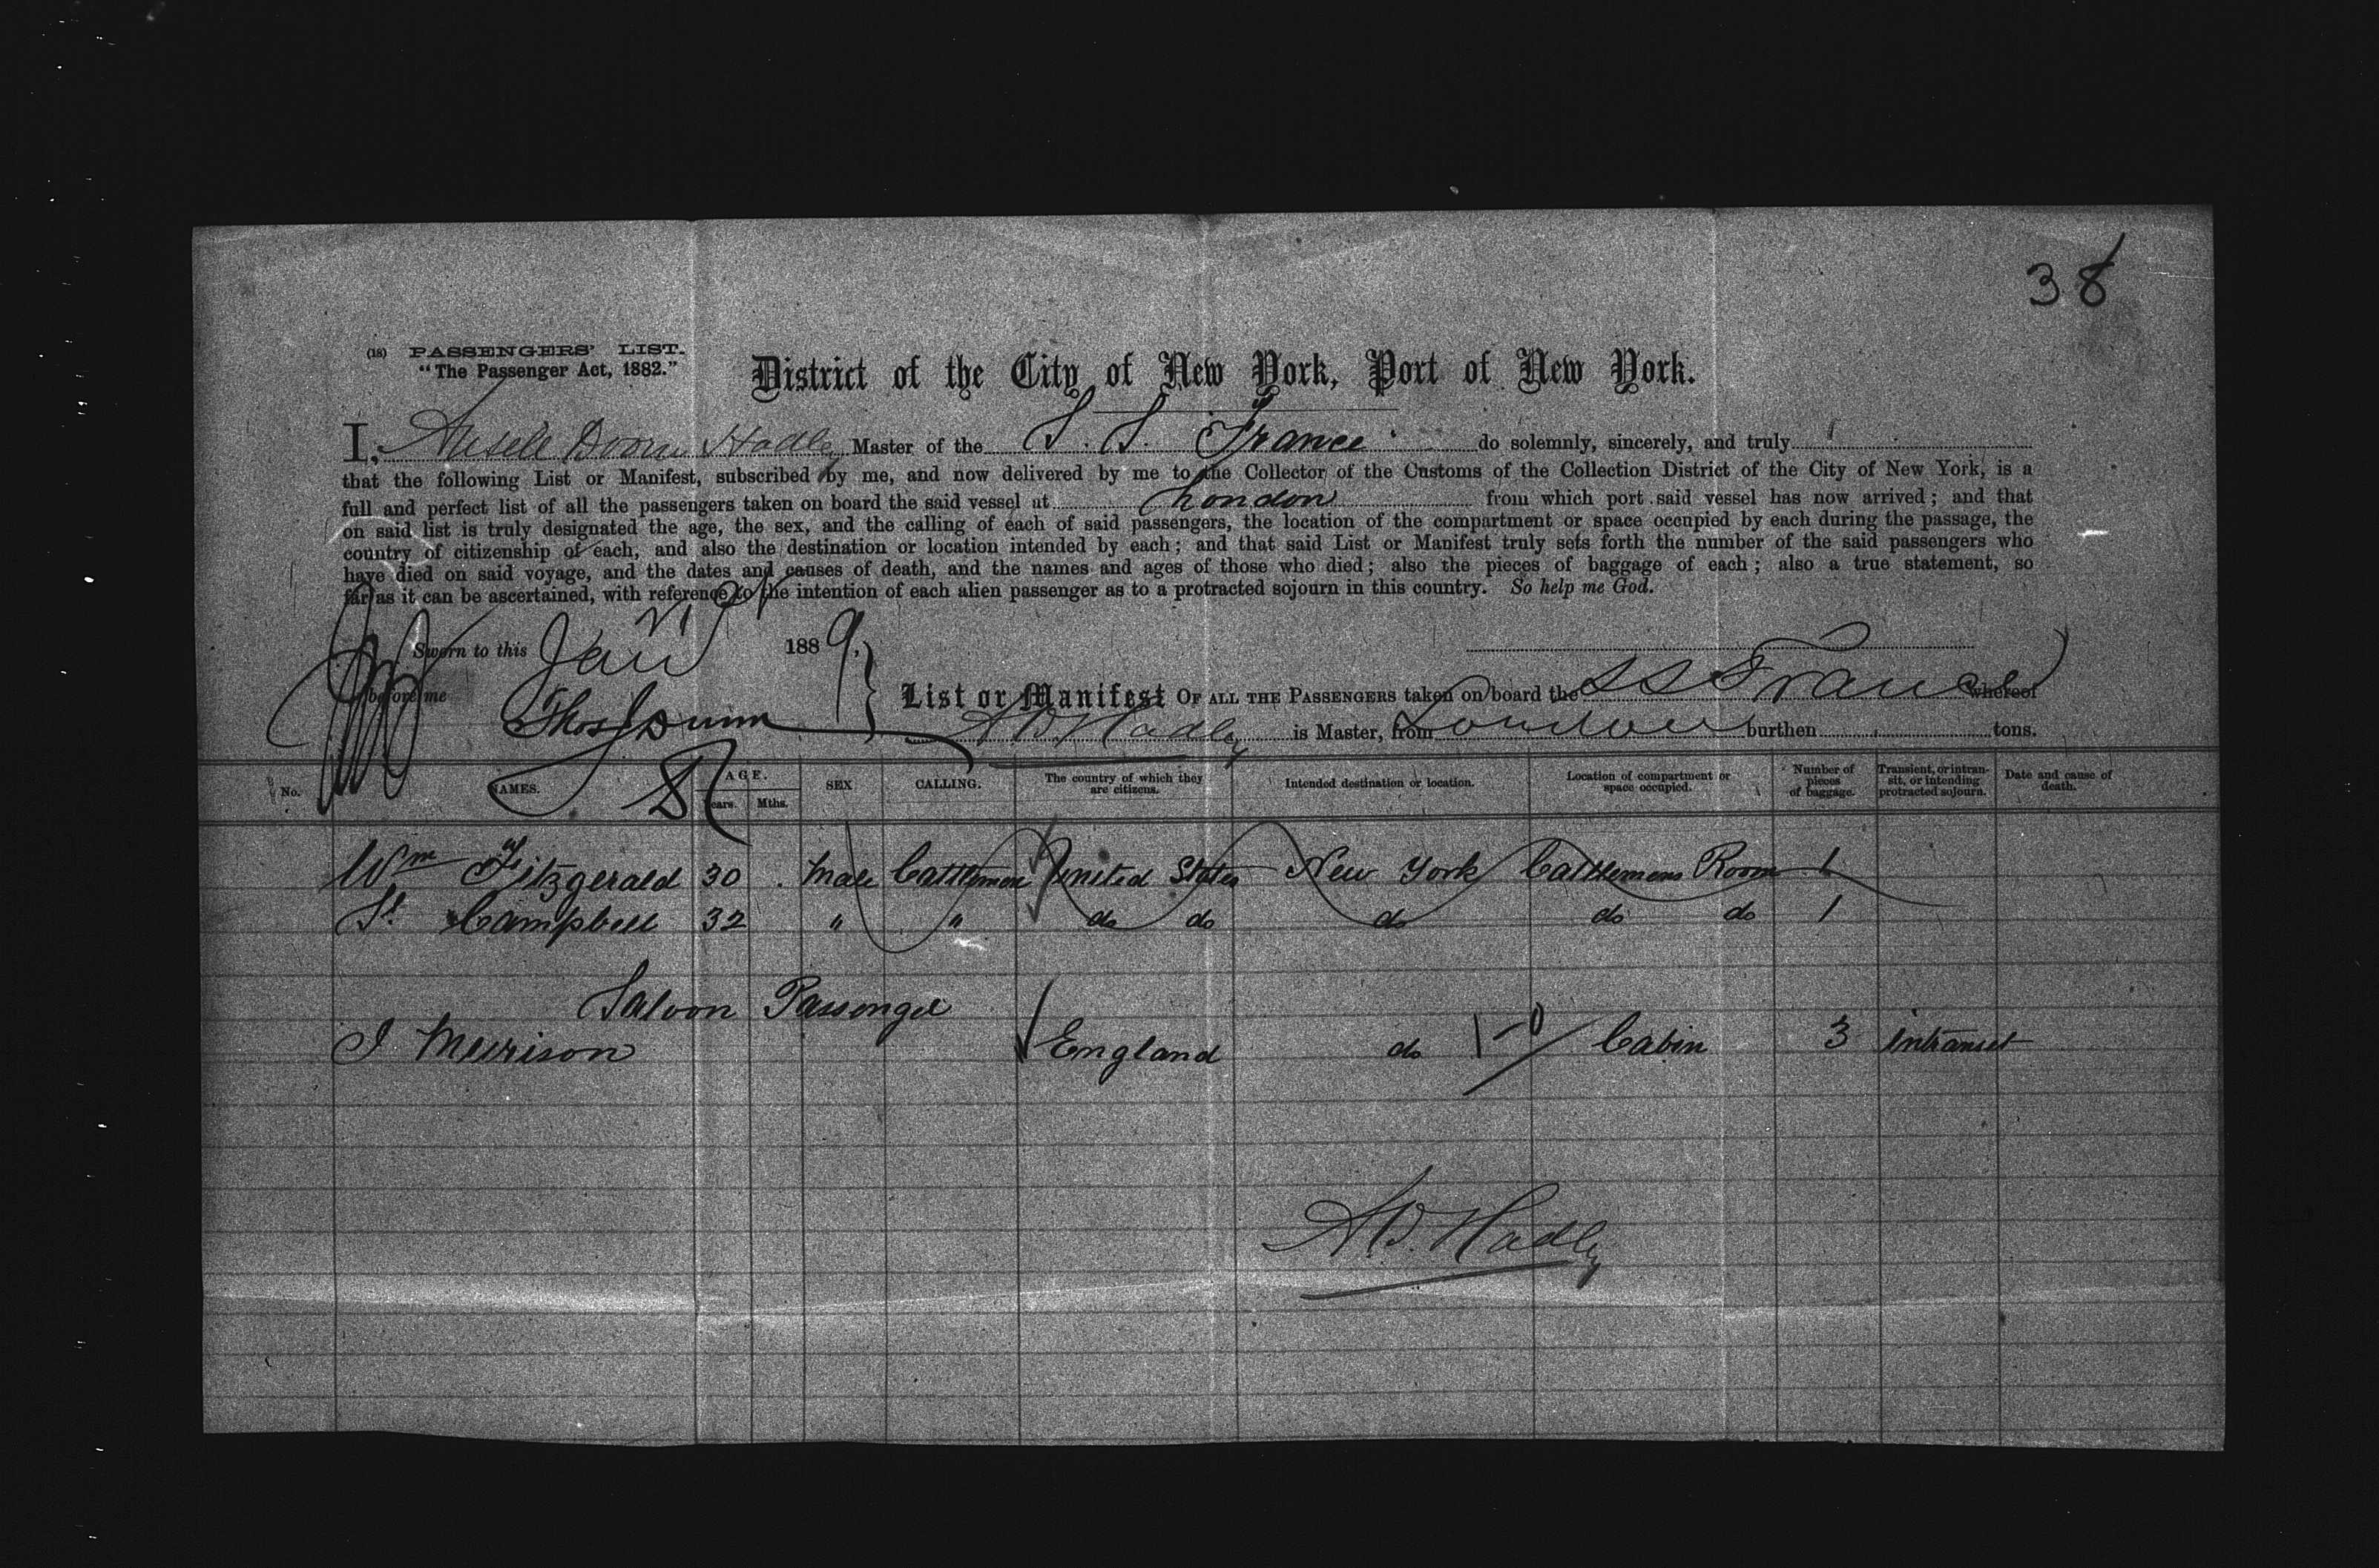 38
(18) PASSENGERS' LIST.
"The Passenger Act, 1882."
District of the City of New York, Port of New York.
I, Hadley Master of the S. S. France do solemnly, sincerely, and truly
that the following List or Manifest, subscribed by me, and now delivered by me to the Collector of the Customs of the Collection District of the City of New York, is a
full and perfect list of all the passengers taken on board the said vessel at London from which port said vessel has now arrived; and that
on said list is truly designated the age, the sex, and the calling of each of said passengers, the location of the compartment or space occupied by each during the passage, the
country of citizenship of each, and also the destination or location intended by each; and that said List or Manifest truly sets forth the number of the said passengers who
have died on said voyage, and the dates and causes of death, and the names and ages of those who died; also the pieces of baggage of each; also a true statement, so
far as it can be ascertained, with reference to the intention of each alien passenger as to a protracted sojourn in this country. So help me God.
Sworn to this Jan 1889.
before me Thos Dunn
List or Manifest OF ALL THE PASSENGERS taken on board the S S France whereof
A D Hadley is Master, from London burthen tons.
No. NAMES. AGE. Years. Mths. SEX CALLING. The country of which they are citizens. Intended destination or location. Location of compartment or space occupied. Number of pieces of baggage. Transient, or intransit, or intending protracted sojourn. Date and cause of death.
Wm Fitzgerald 30 Male Cattleman United States New York Cattlemens Room 1
Campbell 32 " " do do do do do 1
Saloon Passenger
J England do Cabin 3 intransit
A.D. Hadley